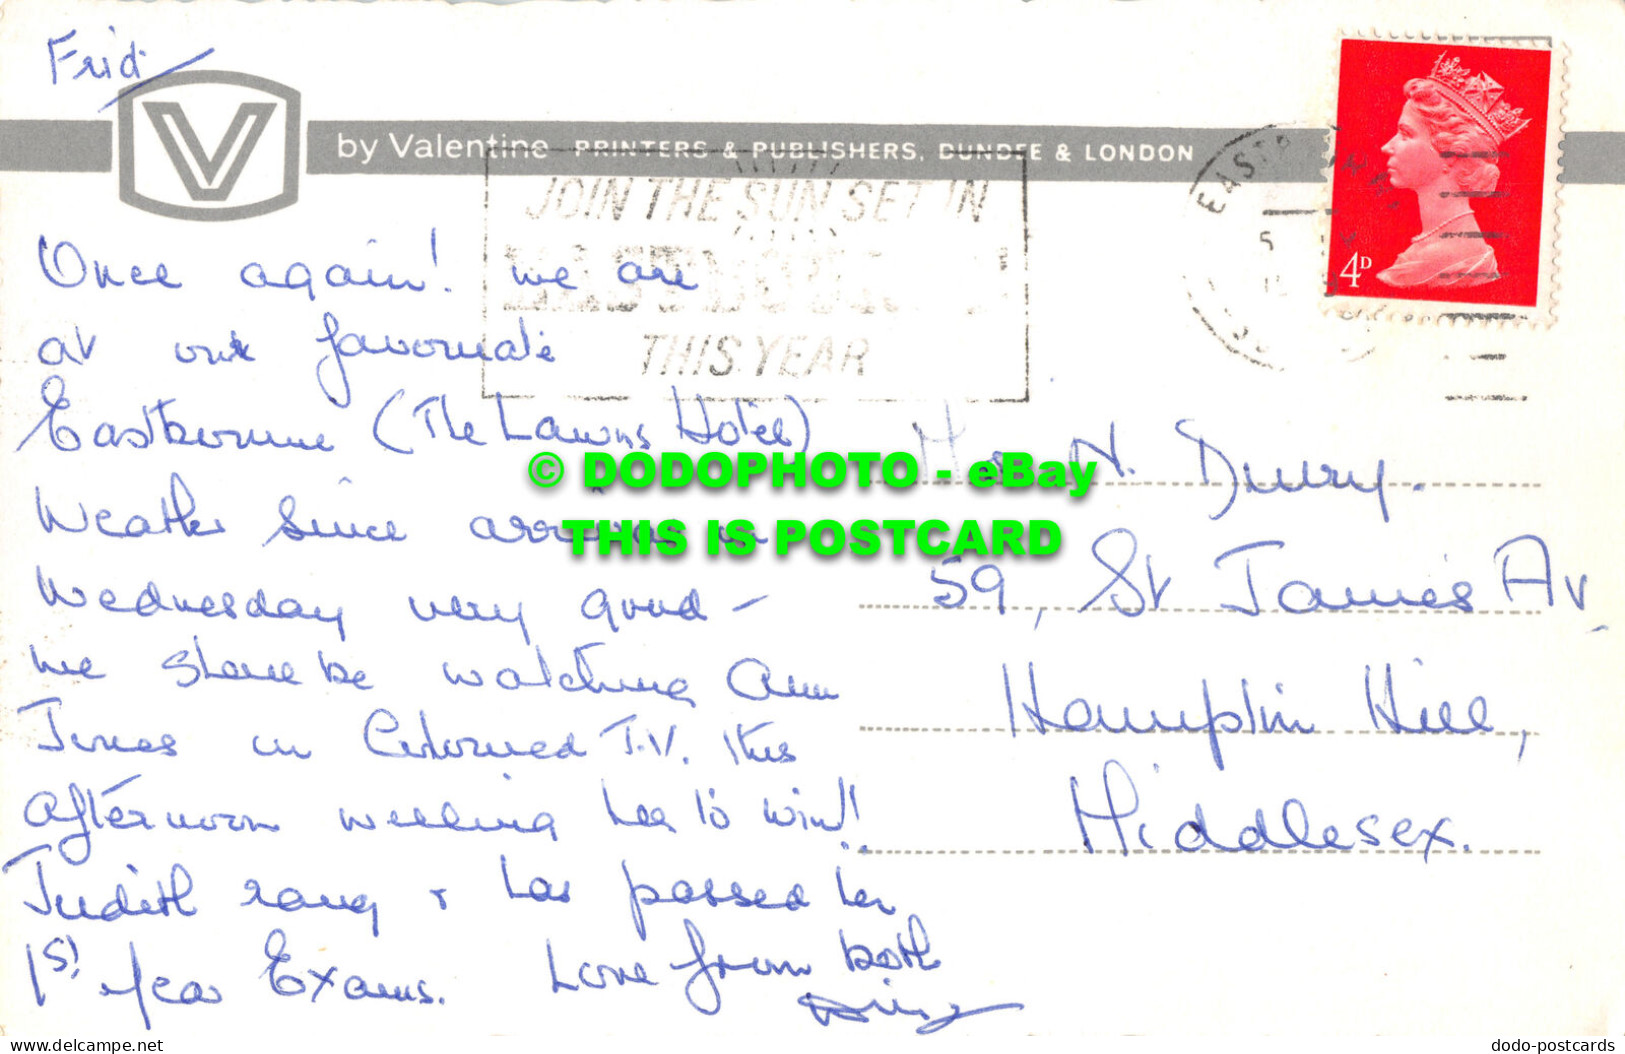 Frid.
V
by Valentine PRINTERS & PUBLISHERS, DUNDEE & LONDON
JOIN THE SUN SET IN
EASTBOURNE
THIS YEAR
4D
Once again! we are
at our favourite
Eastbourne (The Lawns Hotel)
Weather since arrival on
Wednesday very good –
we shall be watching Ann
Jones on Coloured T.V. this
afternoon willing her to win!!
Judith rang & has passed her
1st year Exams. Love from both
N. Drury.
59, St James Av
Hampton Hill,
Middlesex.
© DODOPHOTO - eBay
THIS IS POSTCARD
delcampe.net
dodo-postcards